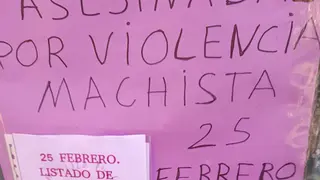 ASESINADAS
POR VIOLENCIA
MACHISTA
25
FEBRERO
25 FEBRERO.
LISTADO DE